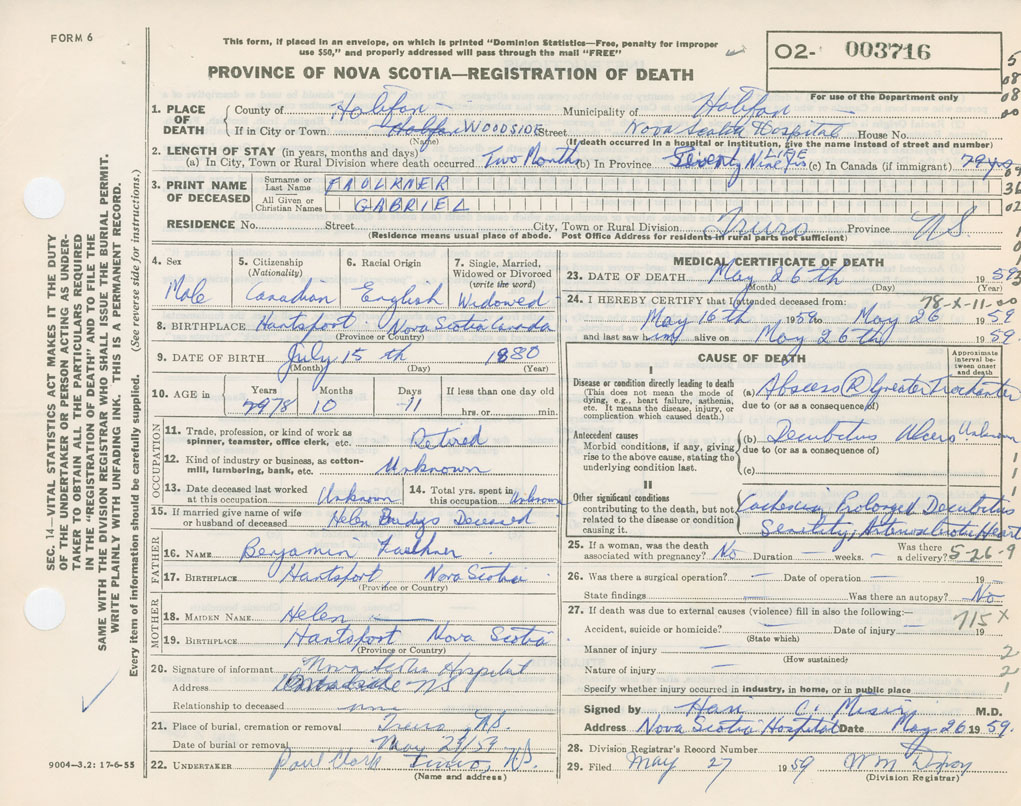 FORM 6
This form, if placed in an envelope, on which is printed "Dominion Statistics—Free, penalty for improper
use $50," and properly addressed will pass through the mail "FREE"
02- 003716
For use of the Department only
PROVINCE OF NOVA SCOTIA—REGISTRATION OF DEATH
1. PLACE OF DEATH
County of Halifax Municipality of Halifax
If in City or Town Halifax WOODSIDE Street Nova Scotia Hospital House No.
(Name) (If death occurred in a hospital or institution, give the name instead of street and number)
2. LENGTH OF STAY (in years, months and days)
(a) In City, Town or Rural Division where death occurred Two Months (b) In Province Seventy Nine yrs LIFE (c) In Canada (if immigrant) 79 yrs
3. PRINT NAME OF DECEASED
Surname or Last Name FAULKNER
All Given or Christian Names GABRIEL
RESIDENCE No. Street City, Town or Rural Division Truro Province N.S.
(Residence means usual place of abode. Post Office Address for residents in rural parts not sufficient)
4. Sex Male
5. Citizenship (Nationality) Canadian
6. Racial Origin English
7. Single, Married, Widowed or Divorced (write the word) Widowed
8. BIRTHPLACE Hantsport Nova Scotia Canada
(Province or Country)
9. DATE OF BIRTH July 15th 1880
(Month) (Day) (Year)
10. AGE in Years 79 78 Months 10 Days 11 If less than one day hrs. or min.
OCCUPATION
11. Trade, profession, or kind of work as spinner, teamster, office clerk, etc. Retired
12. Kind of industry or business, as cotton-mill, lumbering, bank, etc. Unknown
13. Date deceased last worked at this occupation Unknown
14. Total yrs. spent in this occupation Unknown
15. If married give name of wife or husband of deceased Helen Deceased
FATHER
16. NAME Benjamin Faulkner
17. BIRTHPLACE Hantsport, Nova Scotia
(Province or Country)
MOTHER
18. MAIDEN NAME Helen —
19. BIRTHPLACE Hantsport Nova Scotia
(Province or Country)
20. Signature of informant Nova Scotia Hospital
Address Woodside NS
Relationship to deceased
21. Place of burial, cremation or removal Truro N.S.
Date of burial or removal May 29/59
22. UNDERTAKER Paul Clark Truro, N.S.
(Name and address)
9004—3.2: 17-6-55
MEDICAL CERTIFICATE OF DEATH
23. DATE OF DEATH May 26th 1959
(Month) (Day) (Year)
78-X-11-00
24. I HEREBY CERTIFY that I attended deceased from:
May 16th 1959 to May 26 1959
and last saw him alive on May 26th 1959.
CAUSE OF DEATH
Approximate interval between onset and death
I
Disease or condition directly leading to death
(This does not mean the mode of dying, e.g., heart failure, asthenia, etc. It means the disease, injury, or complication which caused death.)
(a) Abscess (R) Greater Trochanter
due to (or as a consequence of)
Antecedent causes
Morbid conditions, if any, giving rise to the above cause, stating the underlying condition last.
(b) Decubitus Ulcers Unknown
due to (or as a consequence of)
(c)
II
Other significant conditions
contributing to the death, but not related to the disease or condition causing it.
Cachexia, Prolonged Decubitus
Senility, Arteriosclerotic Heart
25. If a woman, was the death associated with pregnancy? No Duration — weeks. — Was there a delivery? 5-26-9
26. Was there a surgical operation? — Date of operation — 19
State findings — Was there an autopsy? No
27. If death was due to external causes (violence) fill in also the following:—
715 X
Accident, suicide or homicide? — Date of injury — 19
(State which)
Manner of injury —
(How sustained)
Nature of injury —
Specify whether injury occurred in industry, in home, or in public place
Signed by Hari C. M.D.
Address Nova Scotia Hospital Date May 26 1959.
28. Division Registrar's Record Number
29. Filed May 27 1959 Wm
(Division Registrar)
SEC. 14—VITAL STATISTICS ACT MAKES IT THE DUTY
OF THE UNDERTAKER OR PERSON ACTING AS UNDER-
TAKER TO OBTAIN ALL THE PARTICULARS REQUIRED
IN THE "REGISTRATION OF DEATH" AND TO FILE THE
SAME WITH THE DIVISION REGISTRAR WHO SHALL ISSUE THE BURIAL PERMIT.
WRITE PLAINLY WITH UNFADING INK. THIS IS A PERMANENT RECORD.
Every item of information should be carefully supplied. (See reverse side for instructions.)